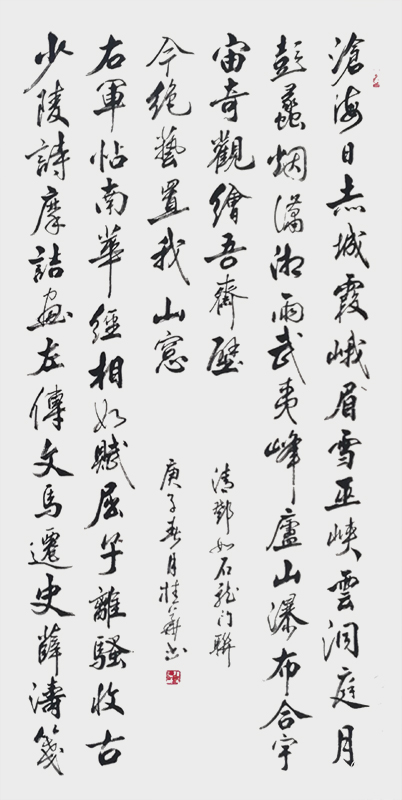 滄海日赤城霞峨眉雪巫峡雲洞庭月
彭蠡烟瀟湘雨武夷峰廬山瀑布合宇
宙奇觀繪吾齋壁
少陵詩摩詰画左傳文馬遷史薛濤箋
右軍帖南華經相如賦屈子離騷收古
今絶藝置我山窓
清鄧如石龍门聯
庚子春月桂華书